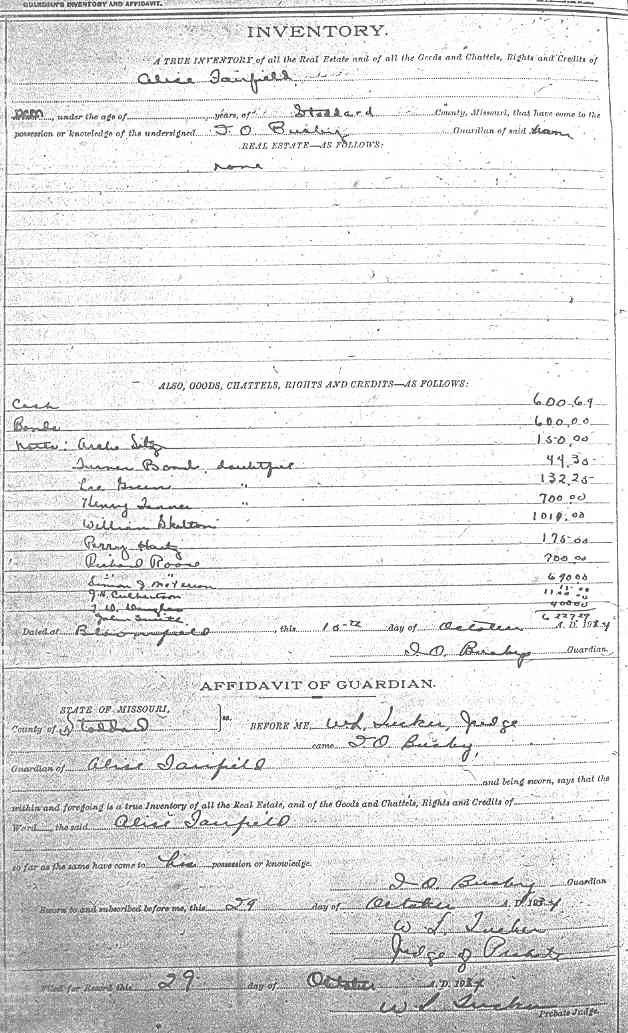 GUARDIAN'S INVENTORY AND AFFIDAVIT.
INVENTORY.
A TRUE INVENTORY of all the Real Estate and of all the Goods and Chattels, Rights and Credits of
Alice Fairfield
, under the age of years, of Stoddard County, Missouri, that have come to the
possession or knowledge of the undersigned I O Busby Guardian of said
REAL ESTATE—AS FOLLOWS:
none
ALSO, GOODS, CHATTELS, RIGHTS AND CREDITS—AS FOLLOWS:
Cash 600.69
Bonds 600.00
Notes: Archie 150.00
Turner Bond, doubtful 44.35
Lee Green " 132.25
Henry Tanner " 700.00
William Skelton 1018.00
Perry 175.00
Richard 700.00
Simon J. 690.00
J.H. Culbertson
John Smith
Dated at Bloomfield, this 15 day of October A. D. 192
I O. Busby Guardian.
AFFIDAVIT OF GUARDIAN.
STATE OF MISSOURI,
County of Stoddard ss. BEFORE ME, W L Tucker, Judge
came I O Busby,
Guardian of Alice Fairfield
and being sworn, says that the
within and foregoing is a true Inventory of all the Real Estate, and of the Goods and Chattels, Rights and Credits of
Ward, the said Alice Fairfield
so far as the same have come to his possession or knowledge.
I O. Busby Guardian
Sworn to and subscribed before me, this 29 day of October A. D. 192
W L Tucker
Judge of Probate
Filed for Record this 29 day of October A. D. 192
W L Tucker
Probate Judge.